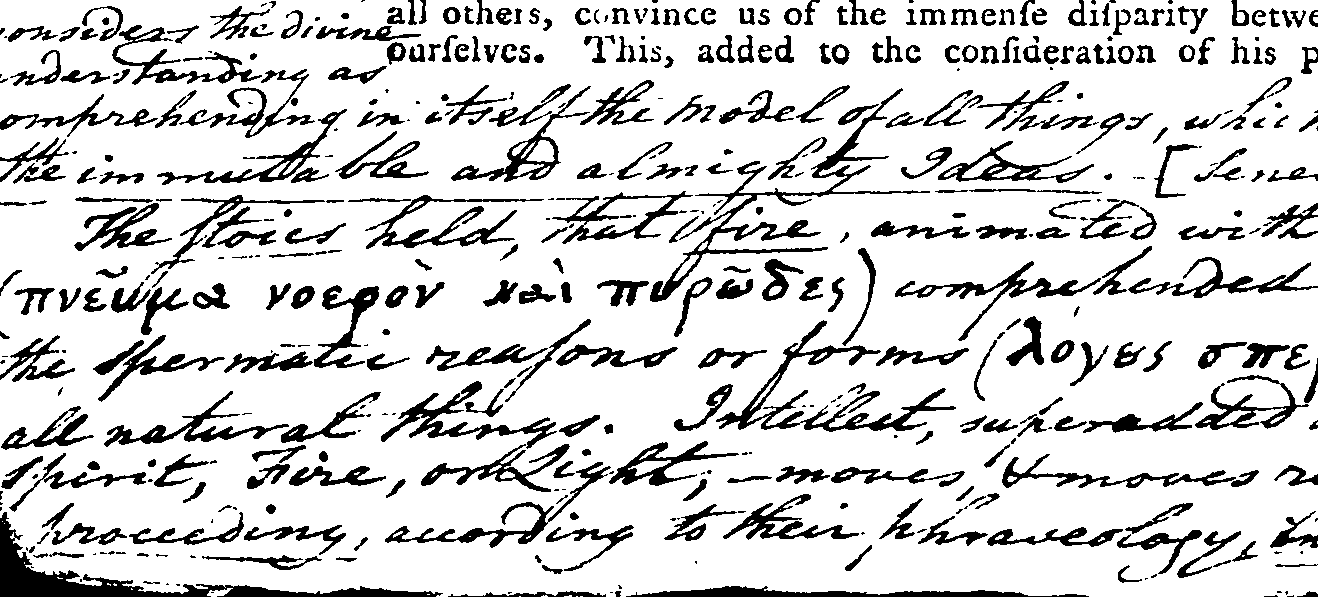 considers the divine
all others, convince us of the immenſe diſparity betwe
understanding as
ourſelves. This, added to the conſideration of his p
omprehending in itself the model of all things, which
the immutable and almighty Ideas. [Sene
The ſtoics held, that fire, animated with
(πνεῦμα νοερὸν καὶ πυρῶδες) comprehended
the spermatic reaſons or forms (λογȣς σπερ
all natural things. Intellect, superadded
spirit, Fire, or Light, – moves, & moves
proceeding, according to their phraseology, in